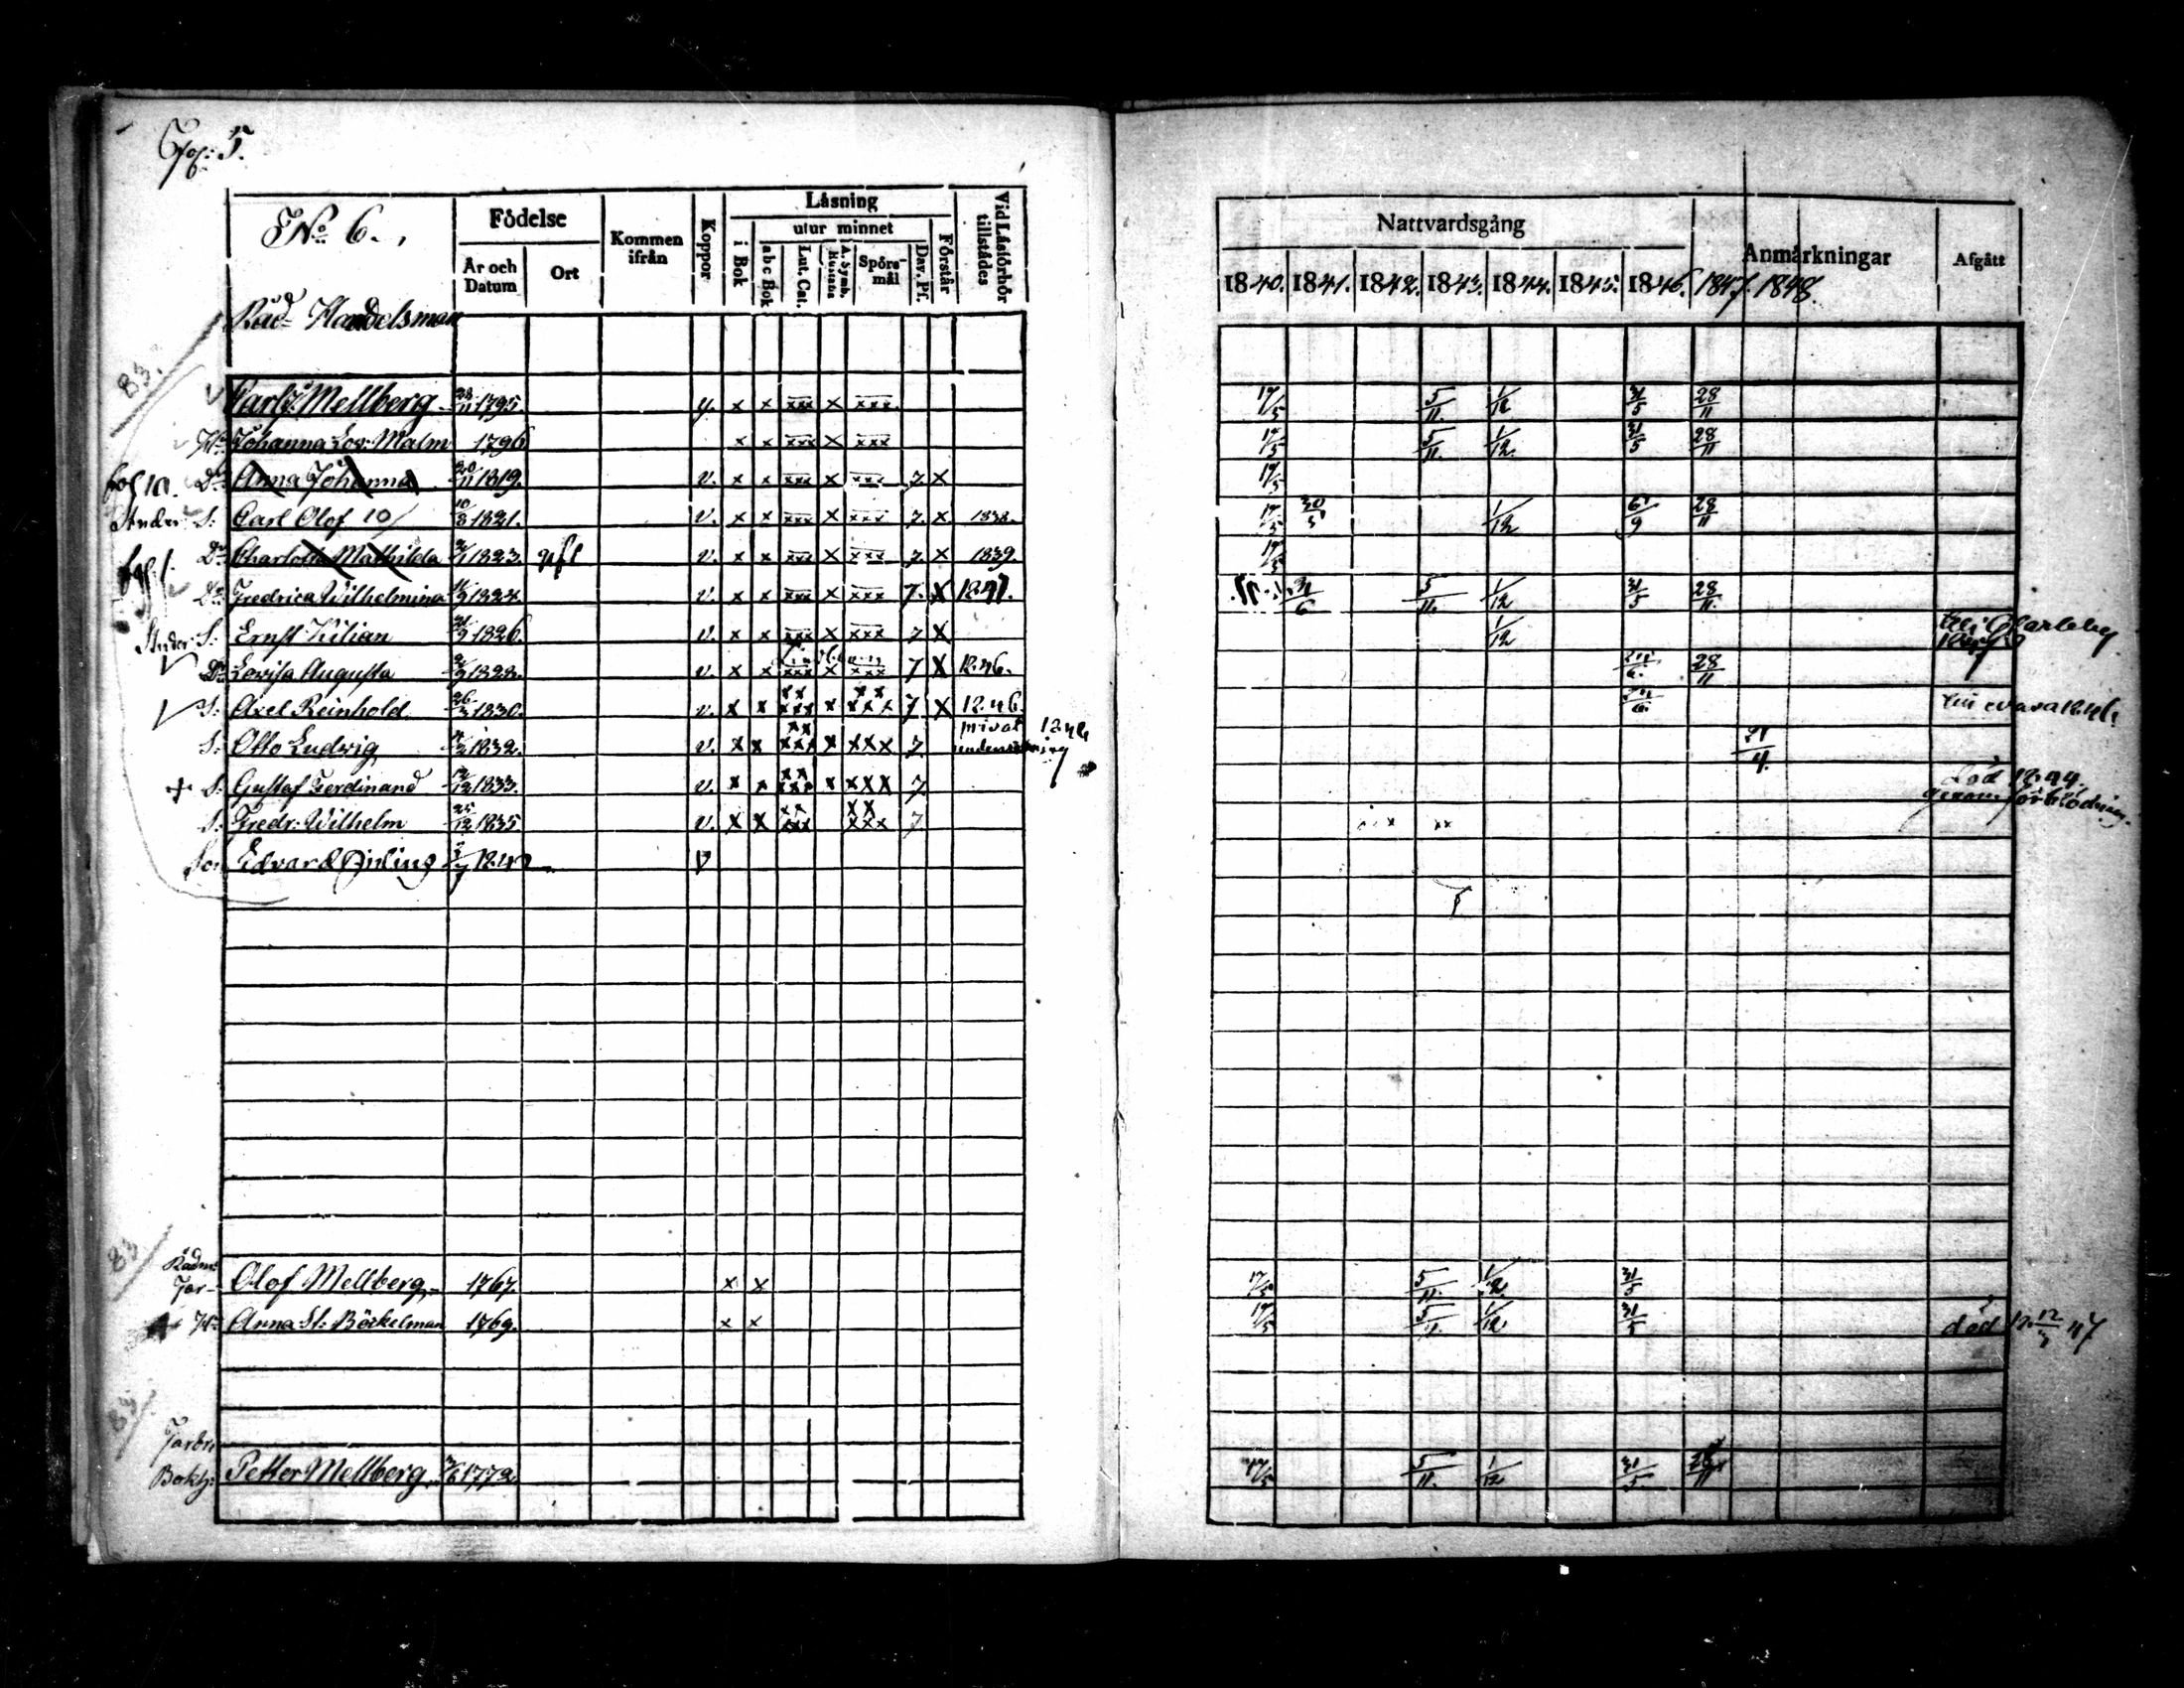 Fol: 5.
No 6.
Födelse
År och Datum
Ort
Kommen ifrån
Koppor
Läsning
i Bok
utur minnet
abc Bok
Lut. Cat.
A. Symb. Hustafla
Spörs-mål
Dav. Ps.
Förstår
Vid Läsförhör tillstådes
Nattvardsgång
1840. 1841. 1842. 1843. 1844. 1845. 1846. 1847. 1848.
Anmärkningar
Afgått
Råd- Handelsman
83.
Carl J. Mellberg 28/11 1795. v. x x xxx x xxx 17/5 5/11 1/12 31/5 28/11
H: Johanna Lov: Malm 1796 x x xxx x xxx 17/5 5/11 1/12 31/5 28/11
fol 10. Dr Anna Johanna 20/11 1819. v. x x xxx x xxx 7 x 17/5
Studer: S: Carl Olof 10 10/8 1821. v. x x xxx x xxx 7. x 1838. 17/5 30/5 1/12 6/9 28/11
Dr Charlotta Mathilda 1823. gift v. x x xxx x xxx 7 x 1839. 17/5
Dr Fredrica Wilhelmina 1824. v. x x xxx x xxx 7. x 1841. 5/11 1/12 31/5 28/11
Studer: S: Ernst Kilian 1826. v. x x xxx x xxx 7 x 1/12
Dr Lovisa Augusta 1828. v. x x xxx x xxx 7 x 1846. 28/11
S: Axel Reinhold 26/3 1830. v. x x xxx x xxx 7 x 1846. 1846.
S: Otto Ludvig 1832. v. x x xxx x xxx 7 privat 1846
S: Gustaf Ferdinand 1833. v. x x xxx x xxx 7 död 1844 genom förblödning.
S: Fredr: Wilhelm 25/12 1835 v. x x xxx xxx 7
Son Edvard Julius 1840 v
83
Rådm:
Far- Olof Mellberg 1767. x x 17/5 5/11 1/12 31/5
H: Anna St: Böckelman 1769. x x 17/5 5/11 1/12 31/5 död 12/3 47
83
Farbr:
Bokh: Petter Mellberg 1772. 17/5 5/11 1/12 31/5